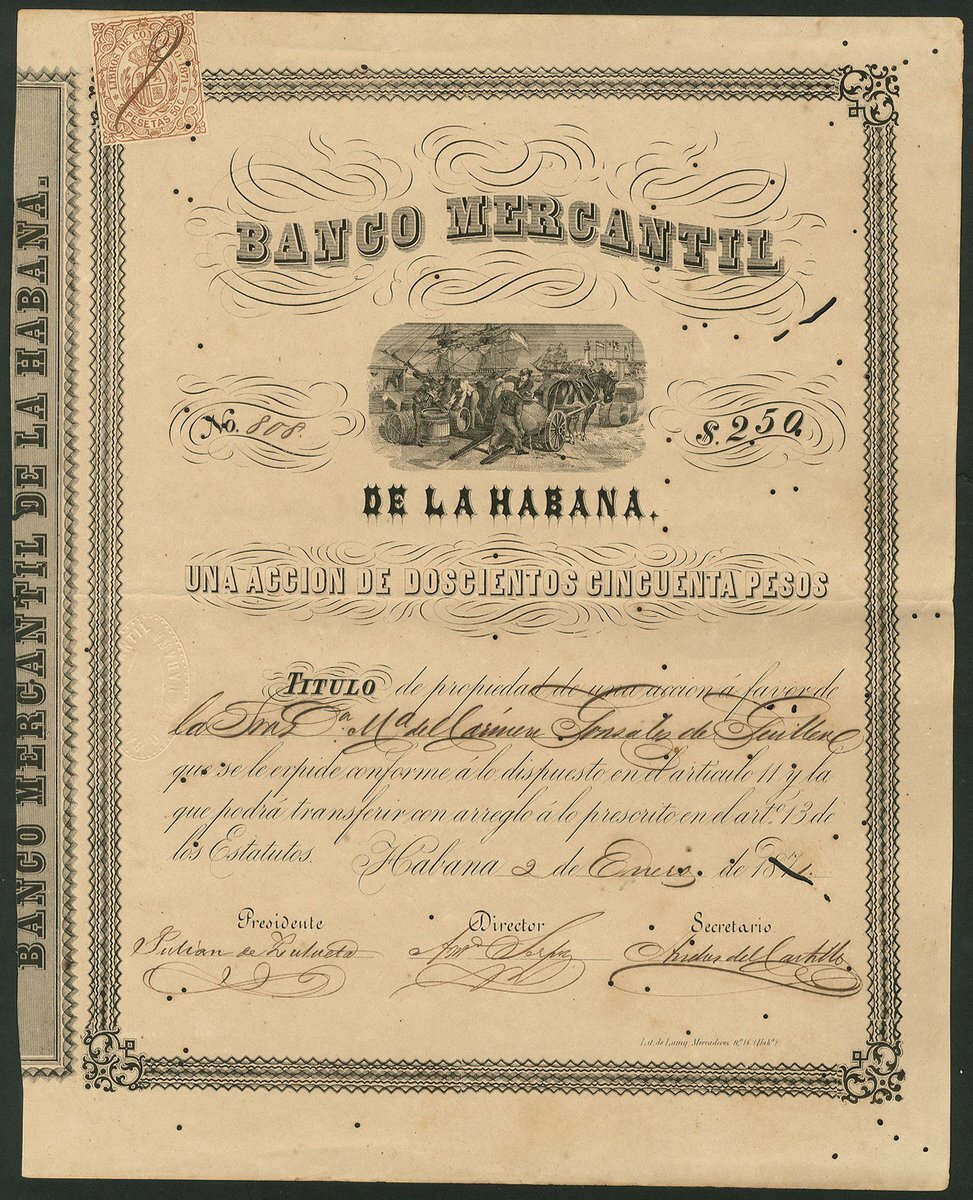 LIBROS DE COMERCIO 1871
PESETAS 50 C
BANCO MERCANTIL DE LA HABANA.
BANCO MERCANTIL
No. 808.
$. 250.
DE LA HABANA.
UNA ACCION DE DOSCIENTOS CINCUENTA PESOS
TITULO de propiedad de una accion á favor de
la Sra Da. Ma. del Cármen Gonzalez de Guillen
que se le expide conforme á lo dispuesto en el articulo 11 y la
que podrá transferir con arreglo á lo prescrito en el arto. 13 de
los Estatutos. Habana 2 de Enero de 1871.
Presidente Director Secretario
Julian de Zulueta del Castillo
Lit. de Lamy, Mercaderes, n.o 14 (Haba.)